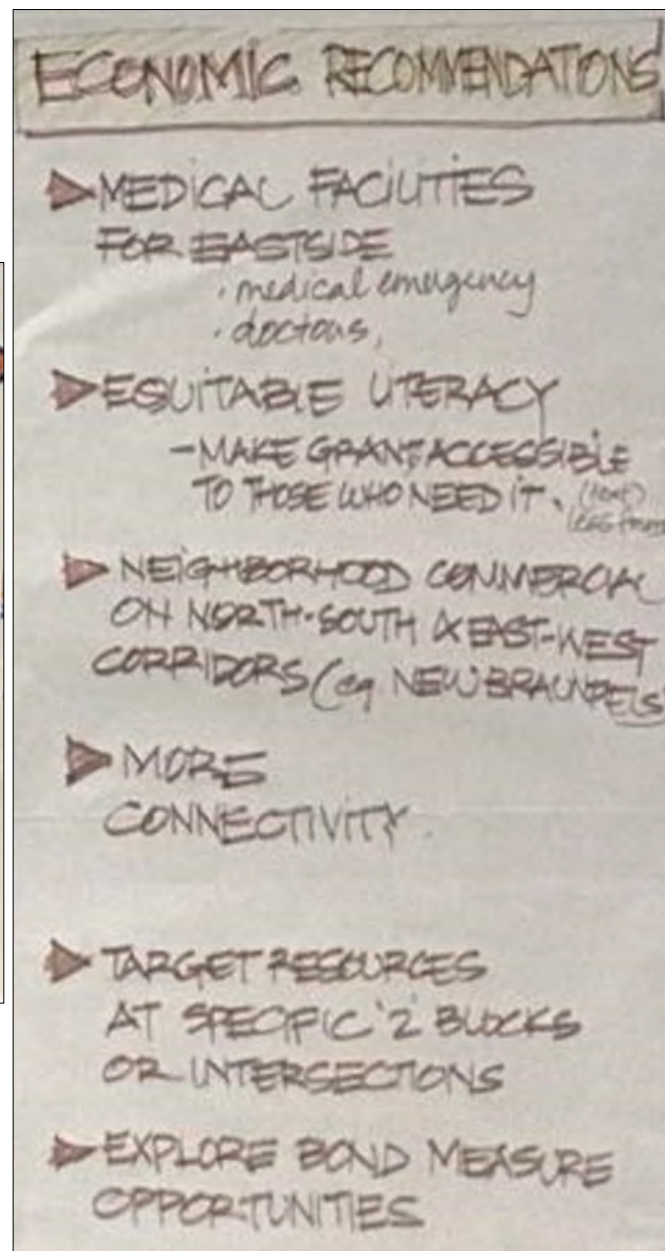 ECONOMIC RECOMMENDATIONS
MEDICAL FACILITIES
FOR EASTSIDE
· medical emergency
· doctors,
EQUITABLE LITERACY
- MAKE GRANT ACCESSIBLE
TO THOSE WHO NEED IT.
NEIGHBORHOOD COMMERCIAL
ON NORTH-SOUTH & EAST-WEST
CORRIDORS (eg NEW BRAUNFELS
MORE
CONNECTIVITY.
TARGET RESOURCES
AT SPECIFIC '2' BLOCKS
OR INTERSECTIONS
EXPLORE BOND MEASURE
OPPORTUNITIES